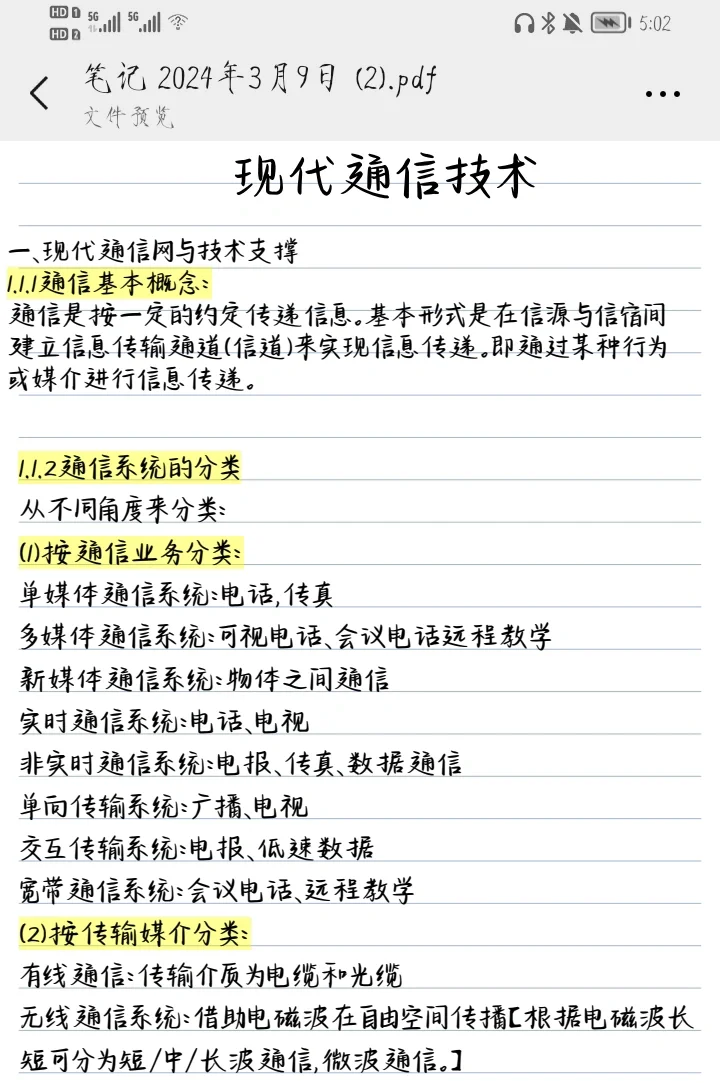 HD 1 5G 5G 5:02
HD 2
笔记 2024年3月9日 (2).pdf
文件预览
现代通信技术
一、现代通信网与技术支撑
1.1.1通信基本概念:
通信是按一定的约定传递信息。基本形式是在信源与信宿间
建立信息传输通道(信道)来实现信息传递。即通过某种行为
或媒介进行信息传递。
1.1.2通信系统的分类
从不同角度来分类:
(1)按通信业务分类:
单媒体通信系统:电话,传真
多媒体通信系统:可视电话、会议电话远程教学
新媒体通信系统:物体之间通信
实时通信系统:电话、电视
非实时通信系统:电报、传真、数据通信
单向传输系统:广播、电视
交互传输系统:电报、低速数据
宽带通信系统:会议电话、远程教学
(2)按传输媒介分类:
有线通信:传输介质为电缆和光缆
无线通信系统:借助电磁波在自由空间传播【根据电磁波长
短可分为短/中/长波通信,微波通信。】